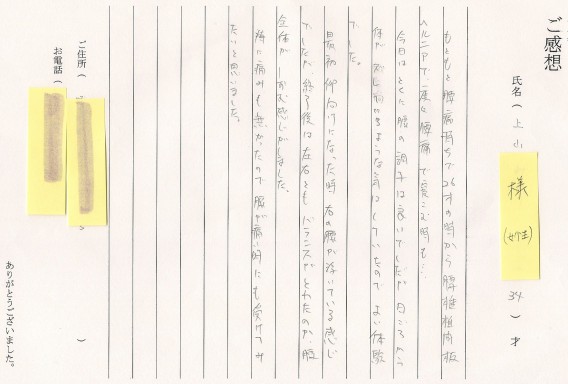 ご感想
氏名（ 上山 様（女性） 34 ）才
もともと腰痛持ちで26才の時から腰椎椎間板
ヘルニアで、一度は腰痛で寝こむ時も…
今日はとくに腰の調子は良いでしたが 日ごろから
体が
でした。
最初 仰向けになった時 右の腰が浮いている感じ
でしたが 終了後は左右とも バランスがとれたのか、腰
全体が しずむ感じがしました。
特に痛みも無かったので 腰が痛い時にも受けてみ
たいと思いました。
ご住所（ ）
お電話（ ）
ありがとうございました。